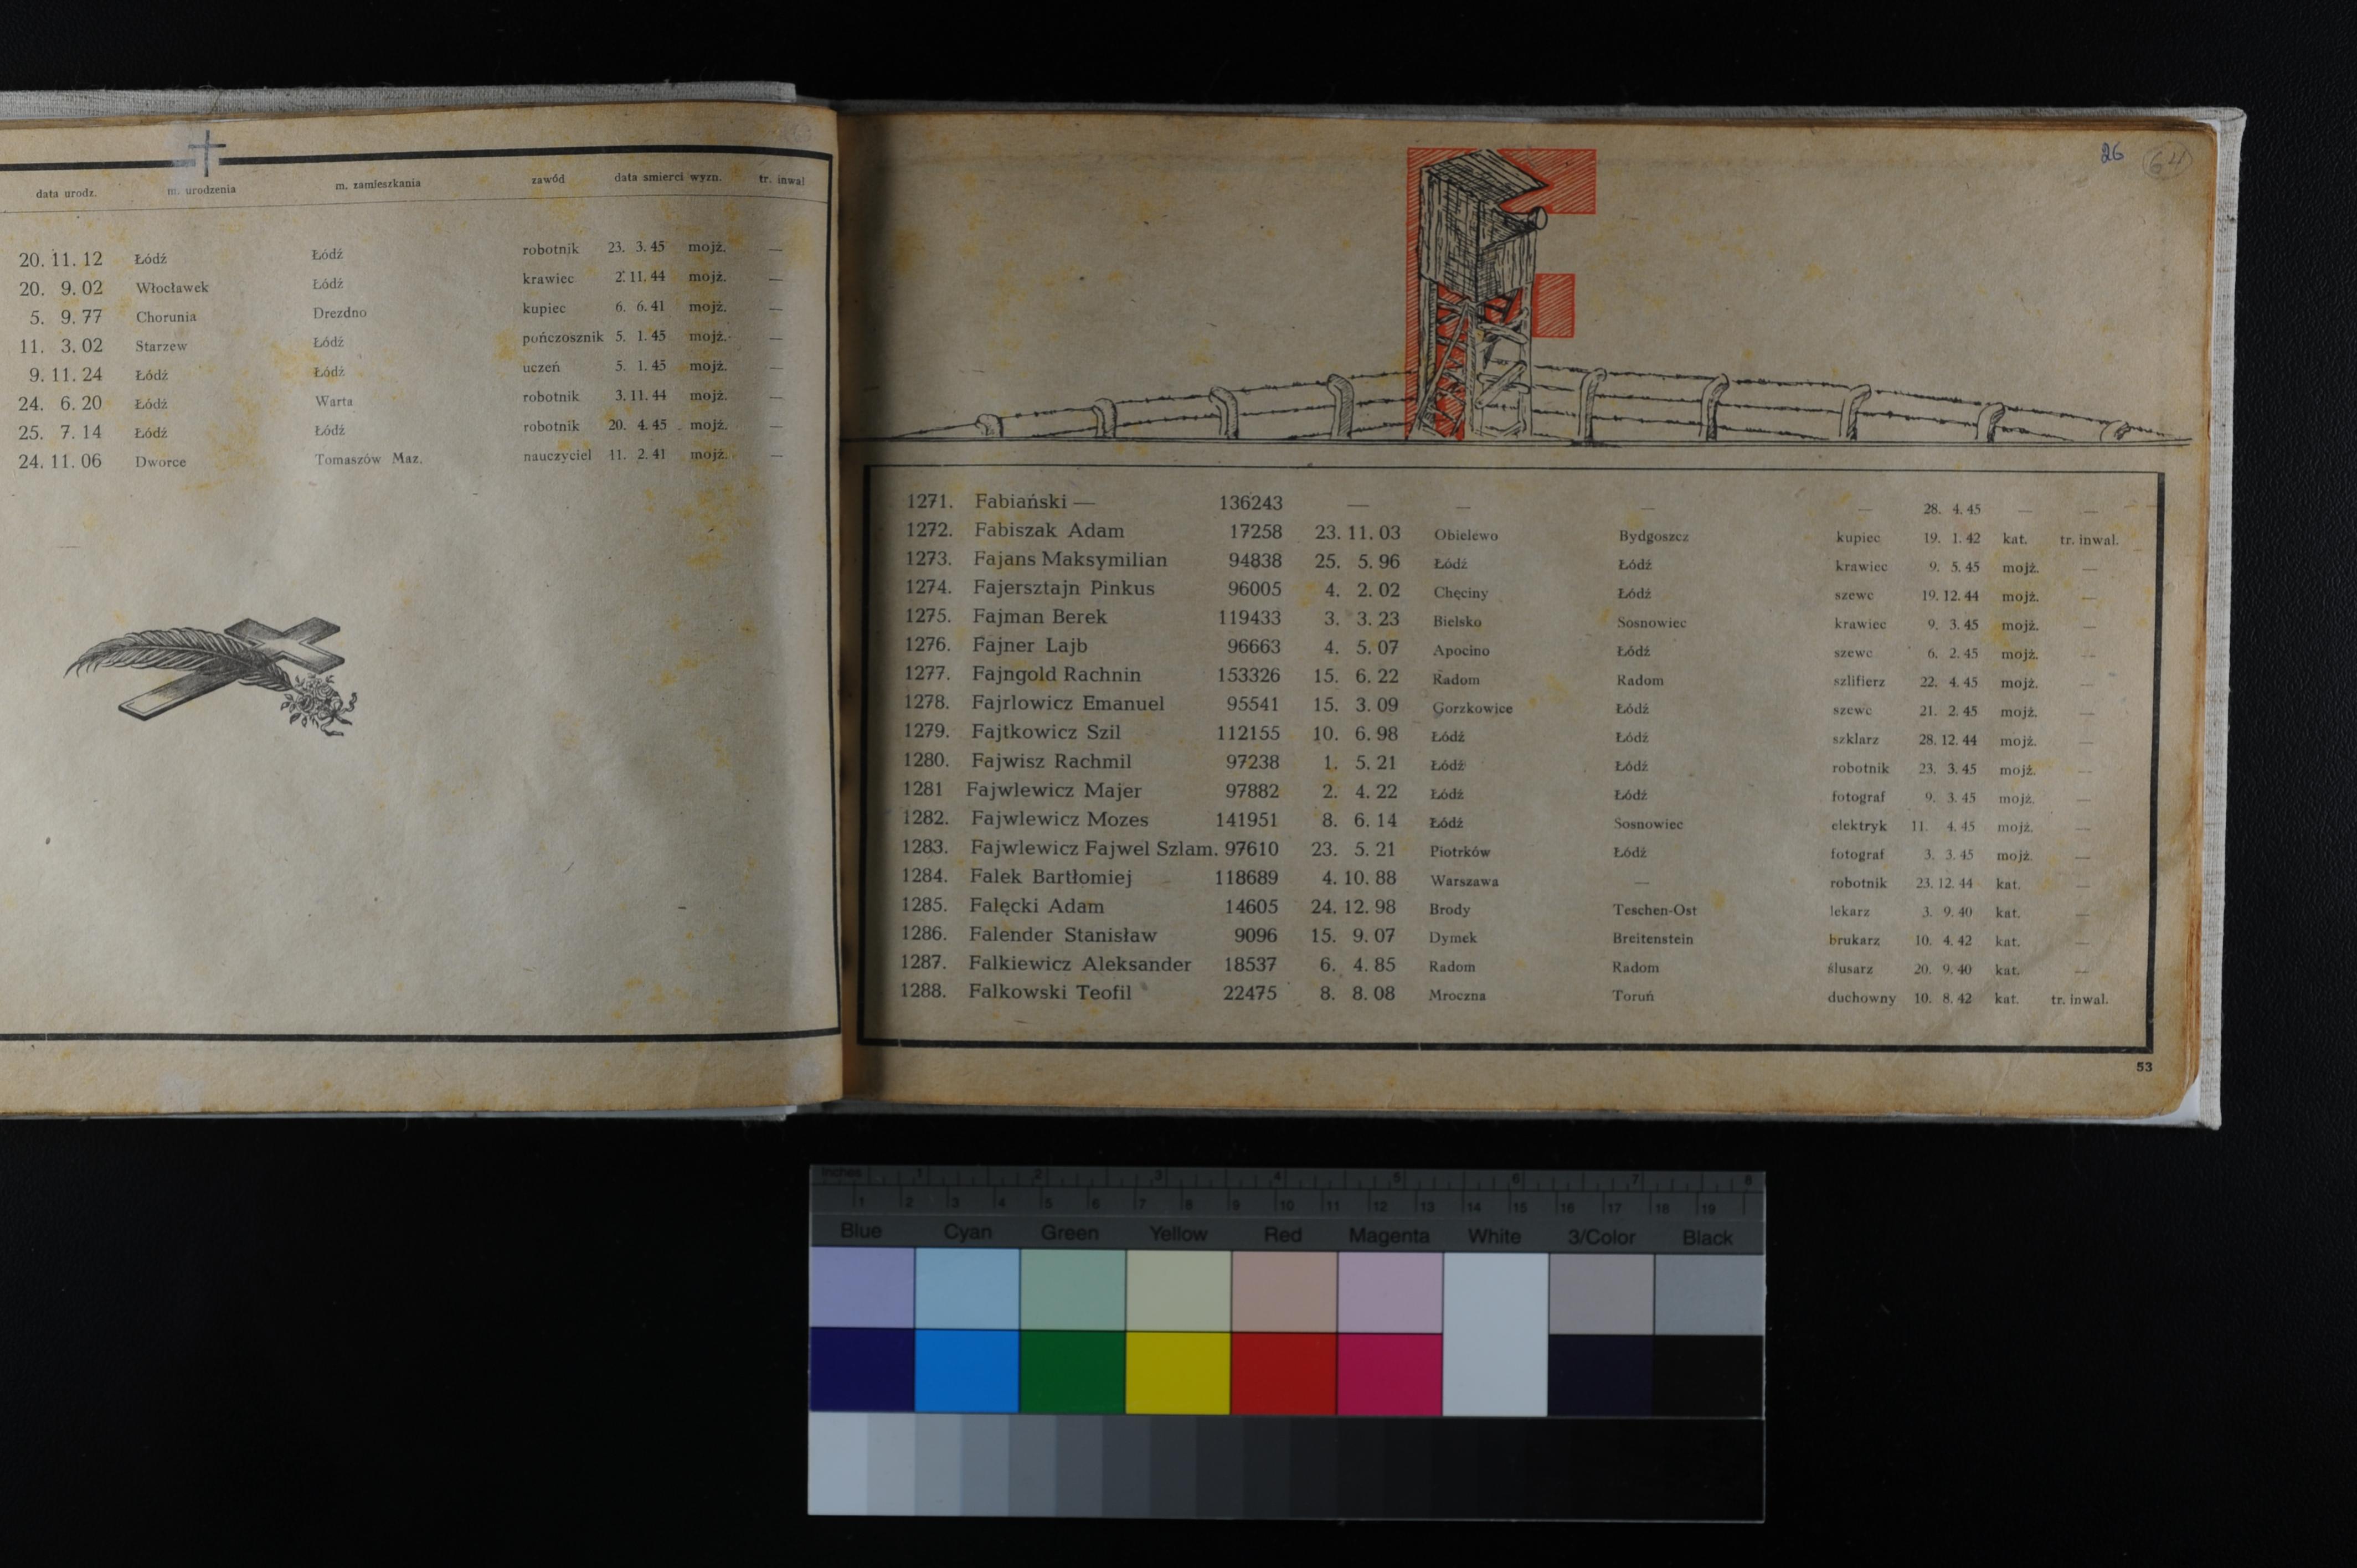 data urodz. m. urodzenia m. zamieszkania zawód data smierci wyzn. tr. inwal
20. 11. 12 Łódź Łódź robotnik 23. 3. 45 mojż. —
20. 9. 02 Włocławek Łódź krawiec 2. 11. 44 mojż. —
5. 9. 77 Chorunia Drezdno kupiec 6. 6. 41 mojż. —
11. 3. 02 Starzew Łódź pończosznik 5. 1. 45 mojż. —
9. 11. 24 Łódź Łódź uczeń 5. 1. 45 mojż. —
24. 6. 20 Łódź Warta robotnik 3. 11. 44 mojż. —
25. 7. 14 Łódź Łódź robotnik 20. 4. 45 mojż. —
24. 11. 06 Dworce Tomaszów Maz. nauczyciel 11. 2. 41 mojż. —
26 64
F
1271. Fabiański — 136243 — — — — 28. 4. 45 — —
1272. Fabiszak Adam 17258 23. 11. 03 Obielewo Bydgoszcz kupiec 19. 1. 42 kat. tr. inwal.
1273. Fajans Maksymilian 94838 25. 5. 96 Łódź Łódź krawiec 9. 5. 45 mojż. —
1274. Fajersztajn Pinkus 96005 4. 2. 02 Chęciny Łódź szewc 19. 12. 44 mojż. —
1275. Fajman Berek 119433 3. 3. 23 Bielsko Sosnowiec krawiec 9. 3. 45 mojż. —
1276. Fajner Lajb 96663 4. 5. 07 Apocino Łódź szewc 6. 2. 45 mojż. —
1277. Fajngold Rachnin 153326 15. 6. 22 Radom Radom szlifierz 22. 4. 45 mojż. —
1278. Fajrlowicz Emanuel 95541 15. 3. 09 Gorzkowice Łódź szewc 21. 2. 45 mojż. —
1279. Fajtkowicz Szil 112155 10. 6. 98 Łódź Łódź szklarz 28. 12. 44 mojż. —
1280. Fajwisz Rachmil 97238 1. 5. 21 Łódź Łódź robotnik 23. 3. 45 mojż. —
1281 Fajwlewicz Majer 97882 2. 4. 22 Łódź Łódź fotograf 9. 3. 45 mojż. —
1282. Fajwlewicz Mozes 141951 8. 6. 14 Łódź Sosnowiec elektryk 11. 4. 45 mojż. —
1283. Fajwlewicz Fajwel Szlam. 97610 23. 5. 21 Piotrków Łódź fotograf 3. 3. 45 mojż. —
1284. Falek Bartłomiej 118689 4. 10. 88 Warszawa — robotnik 23. 12. 44 kat. —
1285. Falęcki Adam 14605 24. 12. 98 Brody Teschen-Ost lekarz 3. 9. 40 kat. —
1286. Falender Stanisław 9096 15. 9. 07 Dymek Breitenstein brukarz 10. 4. 42 kat. —
1287. Falkiewicz Aleksander 18537 6. 4. 85 Radom Radom ślusarz 20. 9. 40 kat. —
1288. Falkowski Teofil 22475 8. 8. 08 Mroczna Toruń duchowny 10. 8. 42 kat. tr. inwal.
53
Inches 1 2 3 4 5 6 7 8
1 2 3 4 5 6 7 8 9 10 11 12 13 14 15 16 17 18 19
Blue Cyan Green Yellow Red Magenta White 3/Color Black